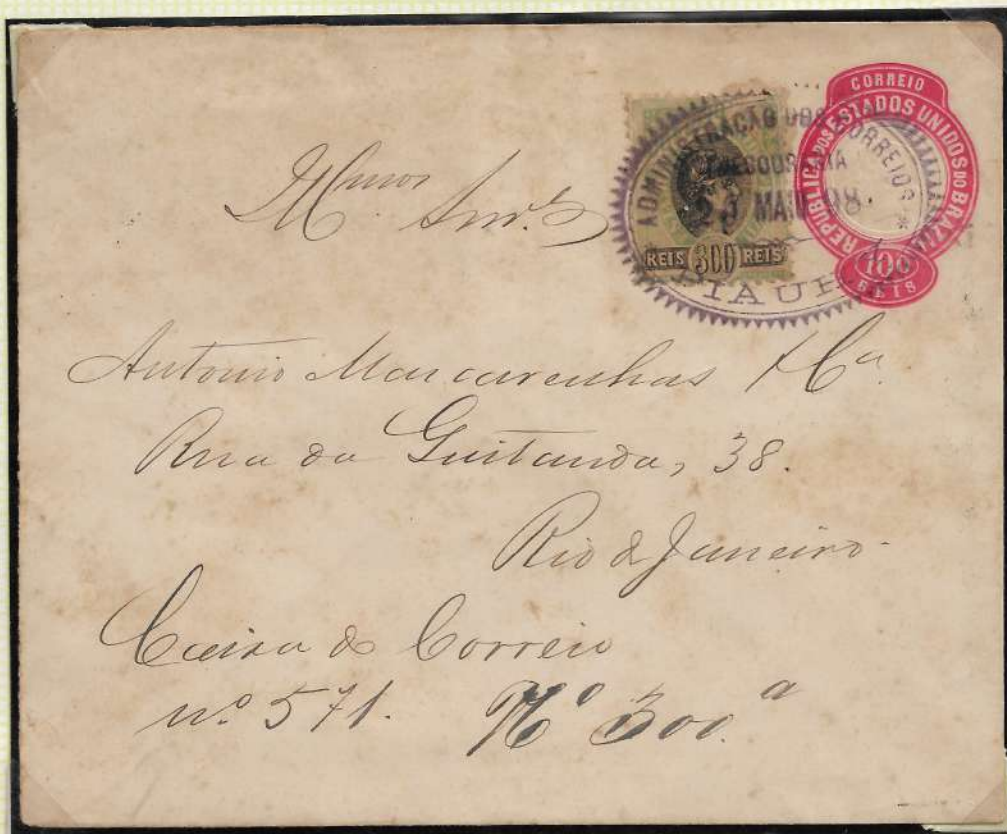 CORREIO
REPUBLICA DOS ESTADOS UNIDOS DO BRAZIL
100
REIS
ADMINISTRAÇÃO DOS CORREIOS *
THESOURARIA
MAIO 98
PIAUHY
REIS 300 REIS
Antonio Mascarenhas & Cª
Rua da Guitanda, 38.
Rio de Janeiro
Caixa do Correio
nº 571.
Nº 300ª